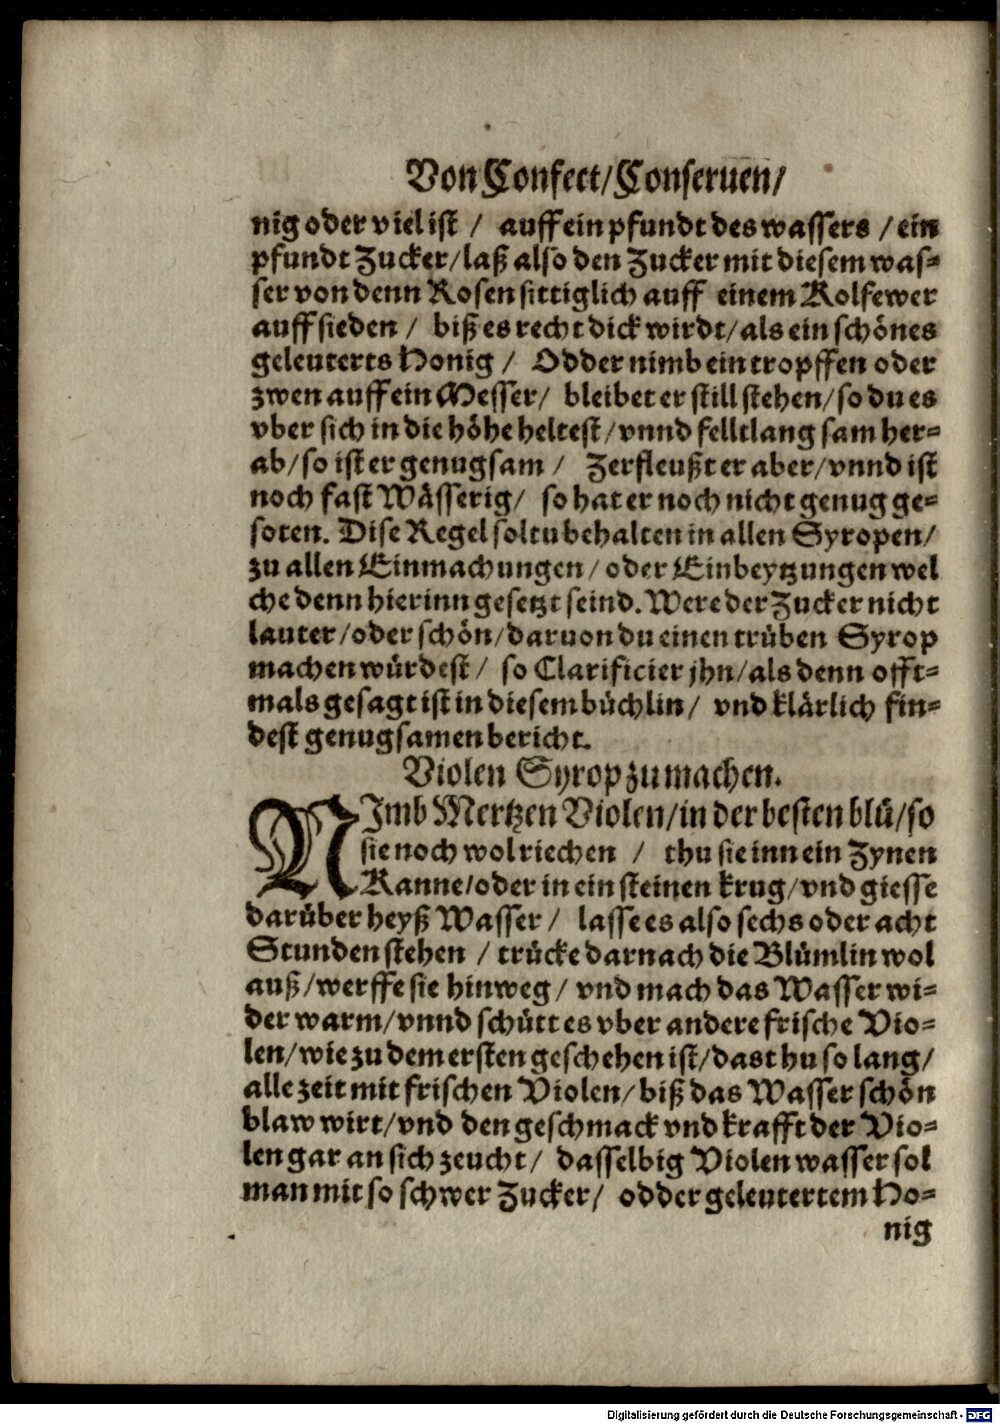 Von Confect/Conseruen/
nig oder viel ist / auff ein pfundt des wassers / ein
pfundt Zucker/laß also den Zucker mit diesem was-
ser von denn Rosen sittiglich auff einem Kolfewer
auff sieden / biß es recht dick wirdt/als ein schönes
geleuterts Honig / Odder nimb ein tropffen oder
zwen auff ein Messer/ bleibet er still stehen/so du es
vber sich in die höhe heltest/vnnd felltlang sam her-
ab/so ist er genugsam / Zerfleußt er aber/vnnd ist
noch fast Wässerig/ so hat er noch nicht genug ge-
soten. Dise Regel soltu behalten in allen Syropen/
zu allen Einmachungen/oder Einbeytzungen wel
che denn hierinn gesetzt seind. Were der Zucker nicht
lauter/oder schön/daruon du einen trüben Syrop
machen würdest/ so Clarificier jhn/als denn offt-
mals gesagt ist in diesem büchlin/ vnd klärlich fin-
dest genugsamen bericht.
Violen Syrop zu machen.
NImb Mertzen Violen/in der besten blü/so
sie noch wol riechen / thu sie inn ein Zynen
Kanne/oder in ein steinen krug/vnd giesse
darüber heyß Wasser/ lasse es also sechs oder acht
Stunden stehen / trücke darnach die Blümlin wol
auß/werffe sie hinweg/ vnd mach das Wasser wi-
der warm/vnnd schütt es vber andere frische Vio-
len/wie zu dem ersten geschehen ist/das thu so lang/
alle zeit mit frischen Violen/biß das Wasser schön
blaw wirt/vnd den geschmack vnd krafft der Vio-
len gar an sich zeucht/ dasselbig Violen wasser sol
man mit so schwer Zucker/ odder geleutertem Ho-
nig
Digitalisierung gefördert durch die Deutsche Forschungsgemeinschaft - DFG